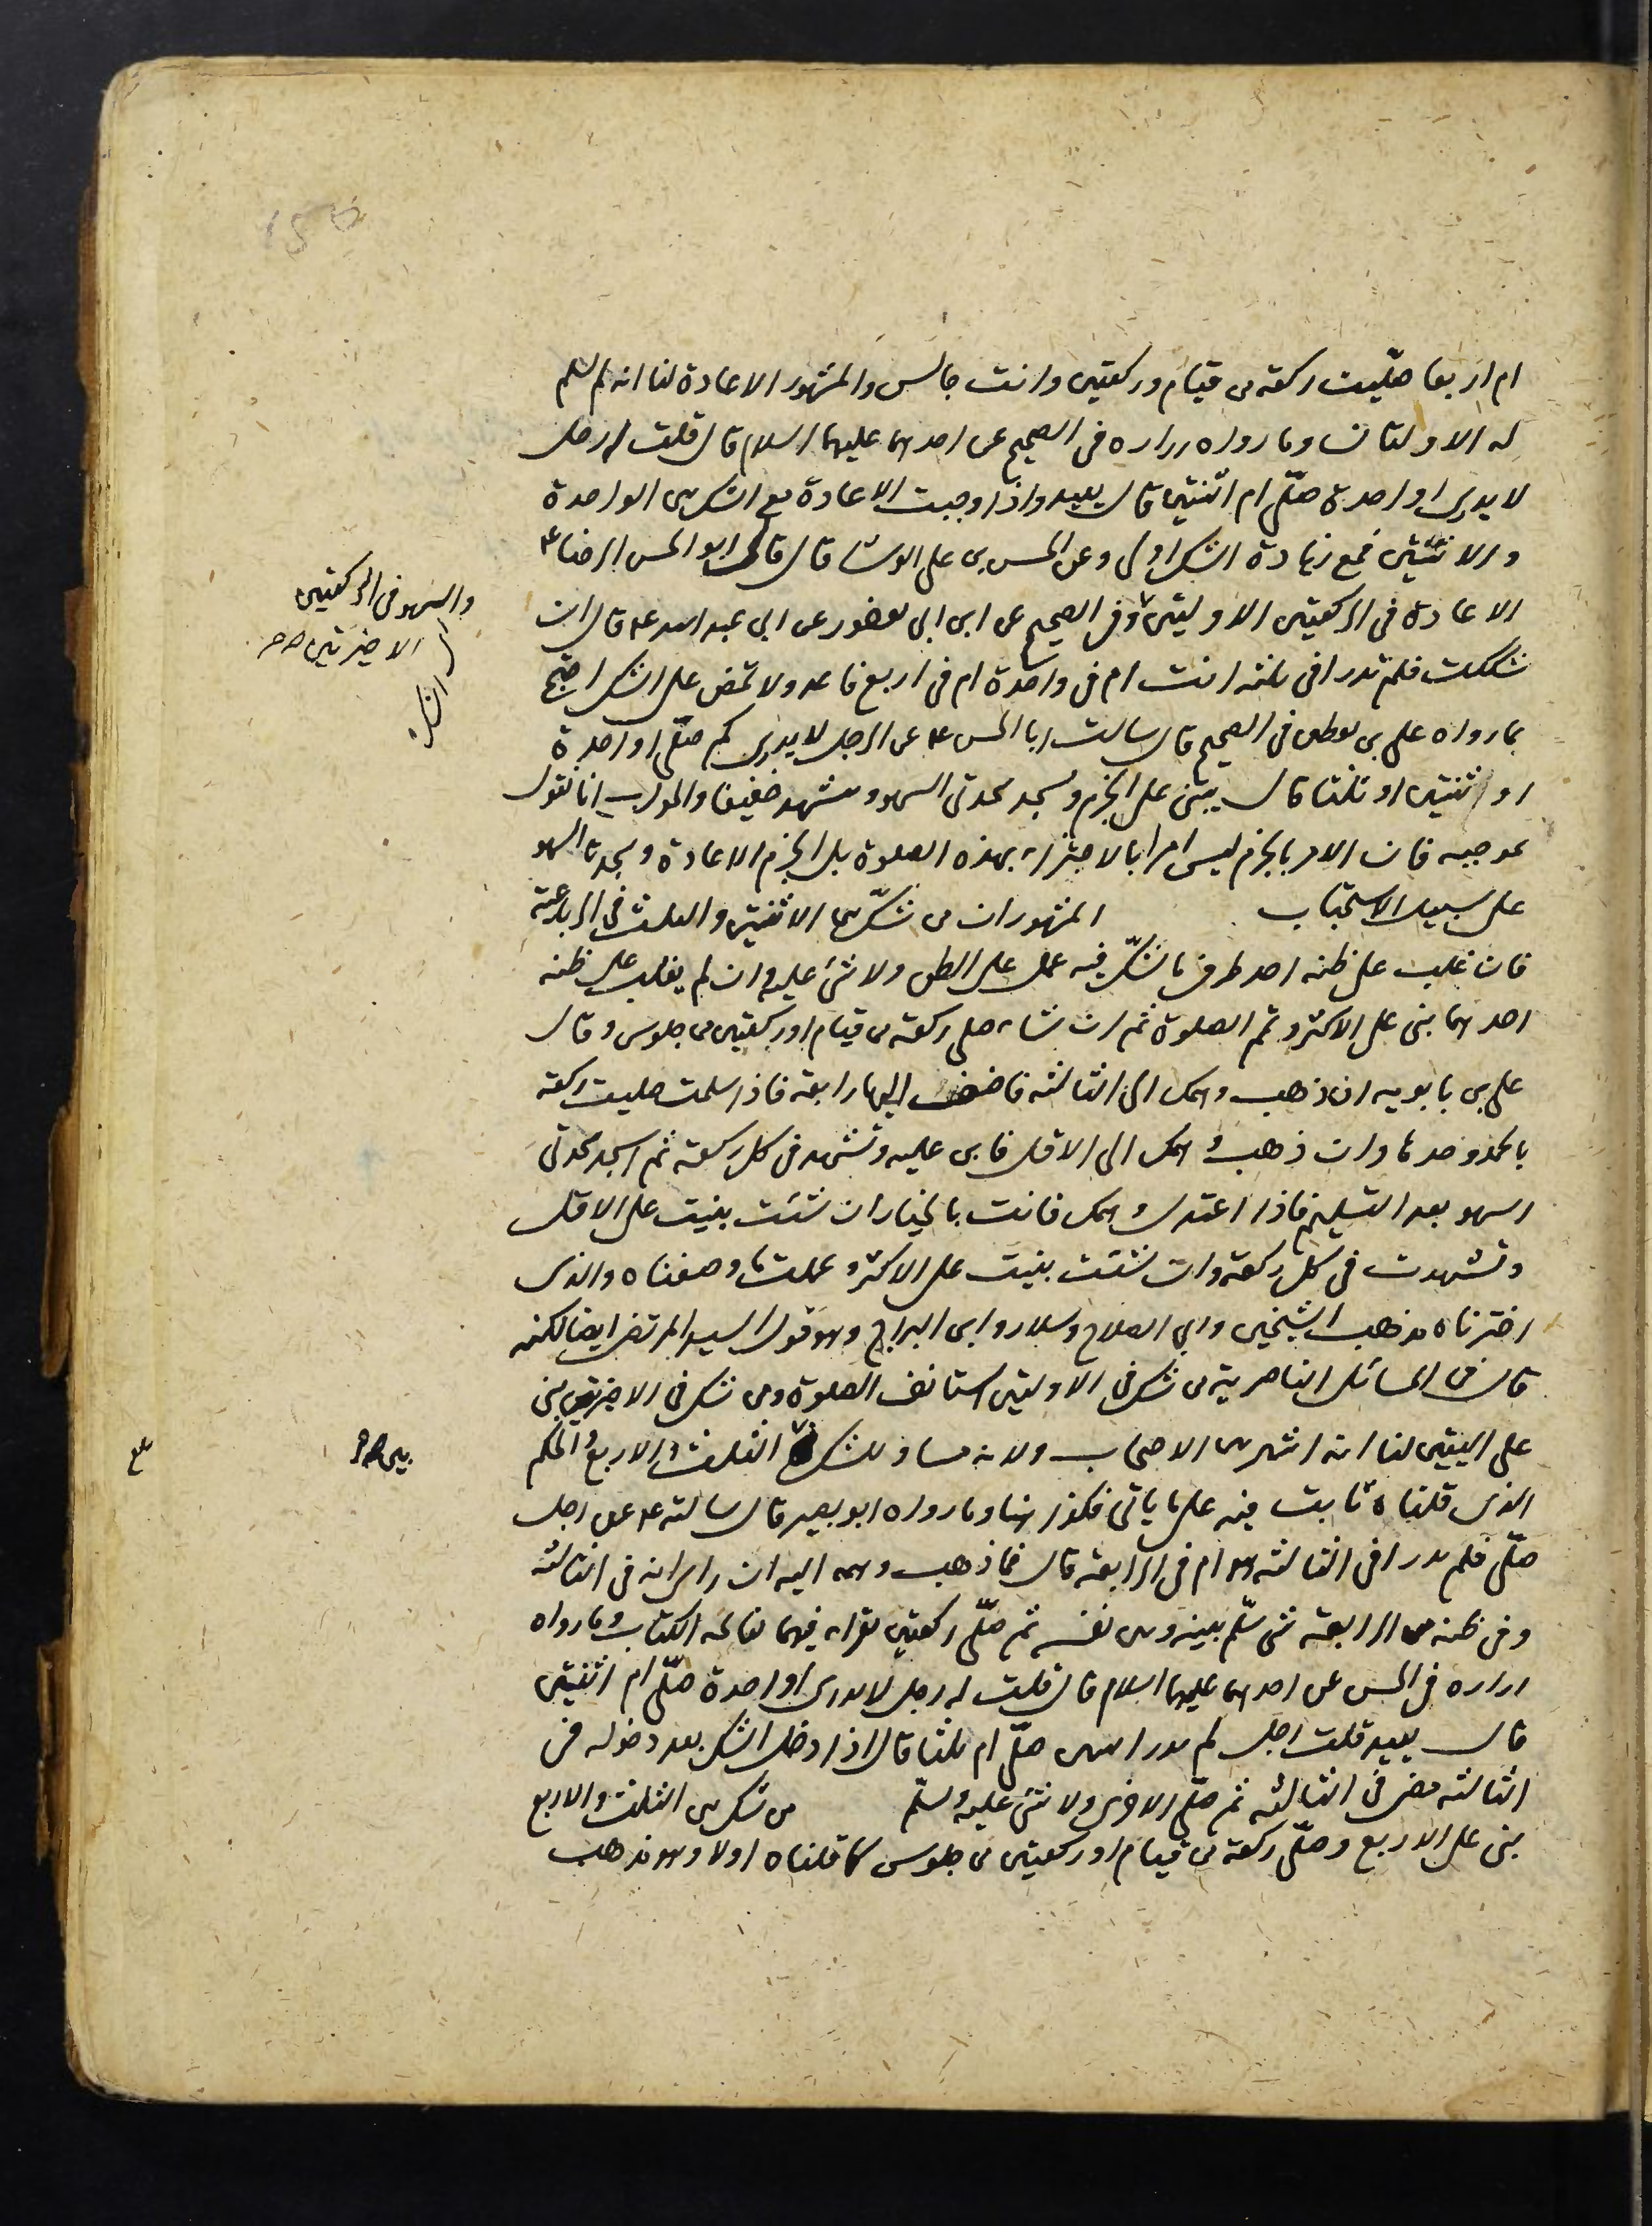 ام اربعا صلّيت ركعة من قيام وركعتين وانت جالس والمشهور الاعادة لنا انه لم تسلم
له الاولتان وما رواه زرارة فى الصحيح عن احدهما عليهما السلام قال قلت له رجل
لا يدرى اواحدة صلّى ام اثنتين قال يعيد واذا وجبت الاعادة مع الشك بين الواحدة
والاثنتين فمع زيادة الشك اولى وعن الحسن بن على الوشا قال قال ابو الحسن الرضا ع
الاعادة فى الركعتين الاوليتين وفى الصحيح عن ابن ابى يعفور عن ابى عبد الله ع قال ان
شككت فلم تدر افى ثلثة انت ام فى واحدة ام فى اربع فاعد ولا تمض على الشك احتج
بما رواه على بن يقطين فى الصحيح قال سالت ابا الحسن ع عن الرجل لا يدرى كم صلّى اواحدة
او اثنتين او ثلثا قال يبنى على الجزم ويسجد سجدتى السهو ويتشهد خفيفا والجواب انا نقول
بموجبه فان الامر بالجزم ليس امرا بالاجتزاء بهذه الصلوة بل الجزم الاعادة وسجدتا السهو
على سبيل الاستحباب المشهور ان من شكّ بين الاثنتين والثلث فى الرباعية
فان غلب على ظنه احد طرفى ما شكّ فيه عمل على الظن ولا شئ عليه وان لم يغلب على ظنه
احدهما بنى على الاكثر وتمم الصلوة ثم ان شاء صلى ركعة من قيام او ركعتين من جلوس وقال
على بن بابويه ان ذهب وهمك الى الثالثة فاضف اليها رابعة فاذا سلمت صليت ركعة
بالحمد وحدها وان ذهب وهمك الى الاقل فابن عليه وتشهد فى كل ركعة ثم اسجد سجدتى
السهو بعد التسليم فاذا اعتدل وهمك فانت بالخيار ان شئت بنيت على الاقل
وتشهدت فى كل ركعة وان شئت بنيت على الاكثر وعملت ما وصفناه والذى
اخترناه مذهب الشيخين وابى الصلاح وسلار وابن البراج وهو قول السيد المرتضى ايضا لكنه
قال فى المسائل الناصرية من شك فى الاوليتين استانف الصلوة ومن شك فى الاخيرتين بنى
على اليقين لنا انه اشهر بين الاصحاب ولانه مساو للشك الثلث والاربع والحكم
الذى قلناه ثابت فيه على ما ياتى فكذا هنا وما رواه ابو بصير قال سالته ع عن رجل
صلّى فلم يدر افى الثالثة هو ام فى الرابعة قال فما ذهب وهمه اليه ان راى انه فى الثالثة
وفى ظنه من الرابعة شئ سلّم بينه وبين نفسه ثم صلّى ركعتين يقرا فيهما بفاتحة الكتاب وما رواه
زرارة فى الحسن عن احدهما عليهما السلام قال قلت له رجل لا يدرى اواحدة صلّى ام اثنتين
قال يعيد قلت رجل لم يدر اثنتين صلّى ام ثلثا قال اذا دخل الشك بعد دخوله فى
الثالثة مضى فى الثالثة ثم صلّى الاخرى ولا شئ عليه وسلّم من شك بين الثلث والاربع
بنى على الاربع وصلّى ركعة من قيام او ركعتين من جلوس كما قلناه اولا وهو مذهب
والسهو فى الركعتين
الاخيرتين صح
بين صح